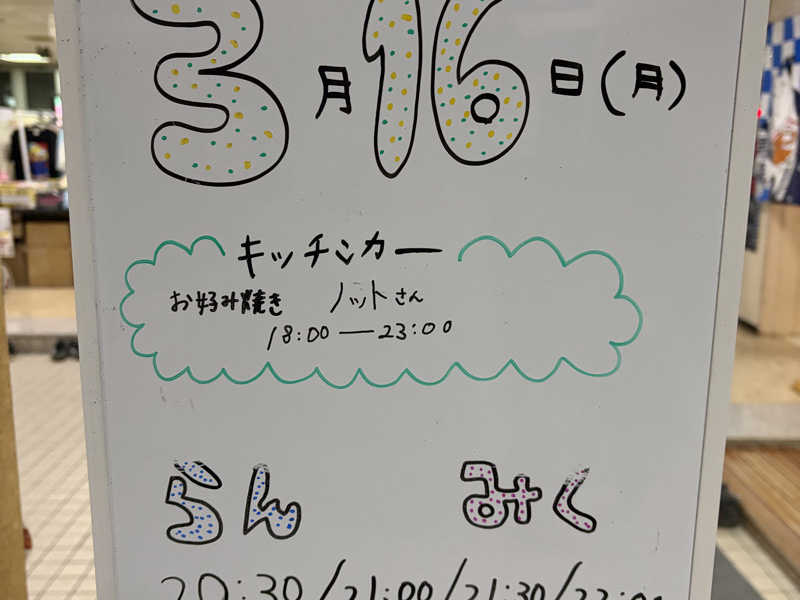 3月16日(月)
キッチンカー
お好み焼き ノットさん
18:00—23:00
らん みく
20:30/21:00/21:30/22:00